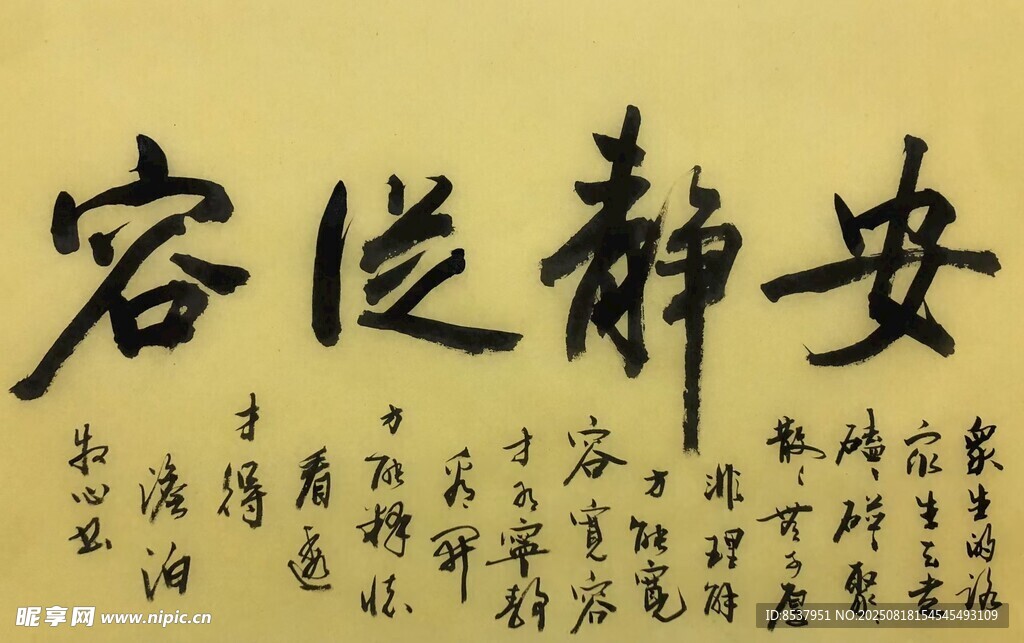 安靜從容
眾生的路
众生去走
磕々碰々聚々
散々無可厚
非理解
方能寬
容寬容
才有寧靜
看開
方能釋懷
看透
才得
澹泊
牧心书
昵享网 www.nipic.cn
ID:8537951 NO:20250818154545493109